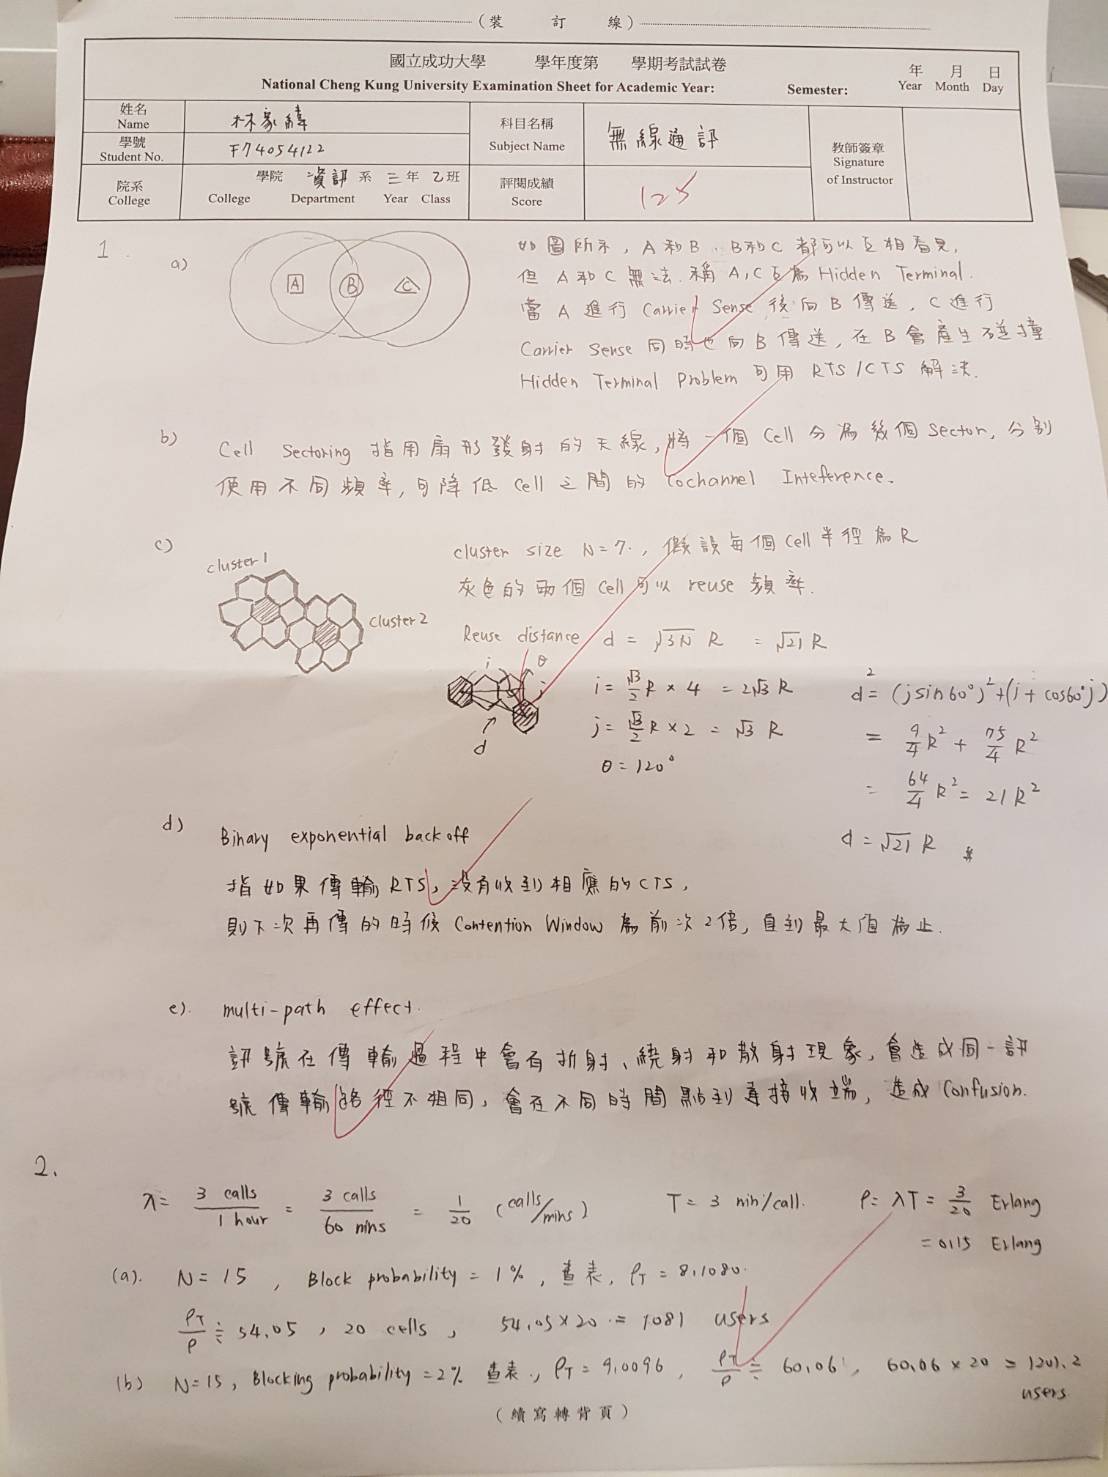 (裝 訂 線)
國立成功大學 學年度第 學期考試試卷 年 月 日
National Cheng Kung University Examination Sheet for Academic Year: Semester: Year Month Day
姓名 Name 林家緯 科目名稱 Subject Name 無線通訊 教師簽章 Signature of Instructor
學號 Student No. F74054122
院系 College 學院 College 資訊 系 Department 三 年 Year 乙 班 Class 評閱成績 Score 125
1.
a) A B C
如圖所示, A和B、B和C都可以互相看見,
但A和C無法. 稱A,C互為 Hidden Terminal.
當A進行 Carrier Sense 後向B傳送, C進行
Carrier Sense 同時也向B傳送, 在B會產生碰撞
Hidden Terminal Problem 可用 RTS/CTS 解決.
b) Cell Sectoring 指用扇形發射的天線, 將一個 Cell 分為幾個 Sector, 分別
使用不同頻率, 可降低 Cell 之間的 Cochannel Inteference.
c) cluster 1 cluster 2
cluster size N=7., 假設每個 cell 半徑為 R
灰色的兩個 Cell 可以 reuse 頻率.
Reuse distance d = √3N R = √21 R
i θ j d
i = √3/2 R × 4 = 2√3 R
j = √3/2 R × 2 = √3 R
θ = 120°
d² = (j sin60°)² + (i + cos60° j)
= 9/4 R² + 75/4 R²
= 64/4 R² = 21 R²
d = √21 R #
d) Binary exponential backoff
指如果傳輸 RTS, 沒有收到相應的 CTS,
則下次再傳的時候 Contention Window 為前次2倍, 直到最大值為止.
e). multi-path effect.
訊號在傳輸過程中會有折射、繞射和散射現象, 會造成同一訊
號傳輸路徑不相同, 會在不同時間點到達接收端, 造成 Confusion.
2.
λ = 3 calls/1 hour = 3 calls/60 mins = 1/20 (calls/mins) T = 3 min/call. ρ = λT = 3/20 Erlang
= 0.15 Erlang
(a). N = 15, Block probability = 1%, 查表, ρT = 8.1080.
ρT/ρ ≒ 54.05, 20 cells, 54.05 × 20 ≒ 1081 users
(b) N=15, Blocking probability = 2% 查表, ρT = 9.0096, ρT/ρ ≒ 60.06, 60.06 × 20 = 1201.2
users
(續寫轉背頁)